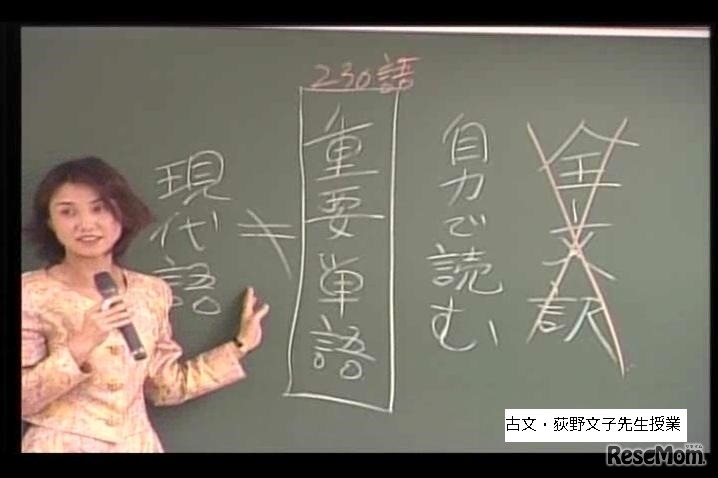 全文訳
自力で読む
230語
重要単語
≠
現代語
古文・荻野文子先生授業
ReseMom